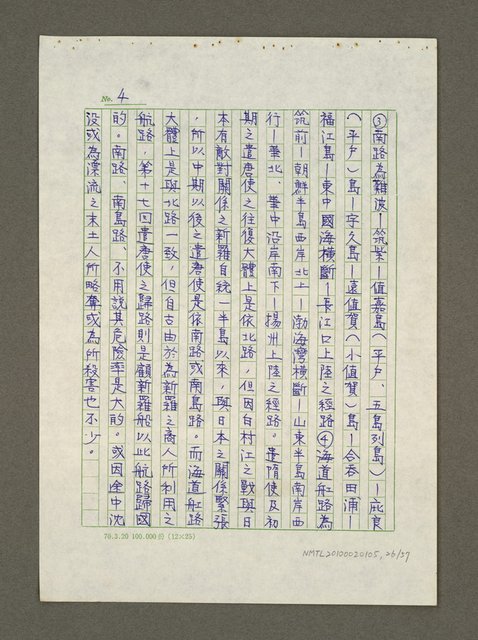 No. 4
③南路為難波—筑紫—值嘉島（平戶、五島列島）—庇良
（平戶）島—宇久島—遠值賀（小值賀）島—合蚕田浦—
福江島—東中國海橫斷—長江口上陸之經路④海道舡路為
筑前—朝鮮半島西岸北上—渤海灣橫斷—山東半島南岸西
行—華北、華中沿岸南下—揚州上陸之經路。遣隋使及初
期之遣唐使之往復大體上是依北路，但因白村江之戰與日
本有敵對關係之新羅自統一半島以來，與日本之關係緊張
，所以中期以後之遣唐使是依南路或南島路。而海道舡路
大體上是與北路一致，但自古由於為新羅之商人所利用之
航路，第十七回遣唐使之歸路則是顧新羅船以此航路歸國
的。南路、南島路、不用說其危險率是大的。或因途中沈
没或為漂流之末土人所略奪或為所殺害也不少。
70.3.20 100.000份 (12×25)
NMTL20100020105, 26/37